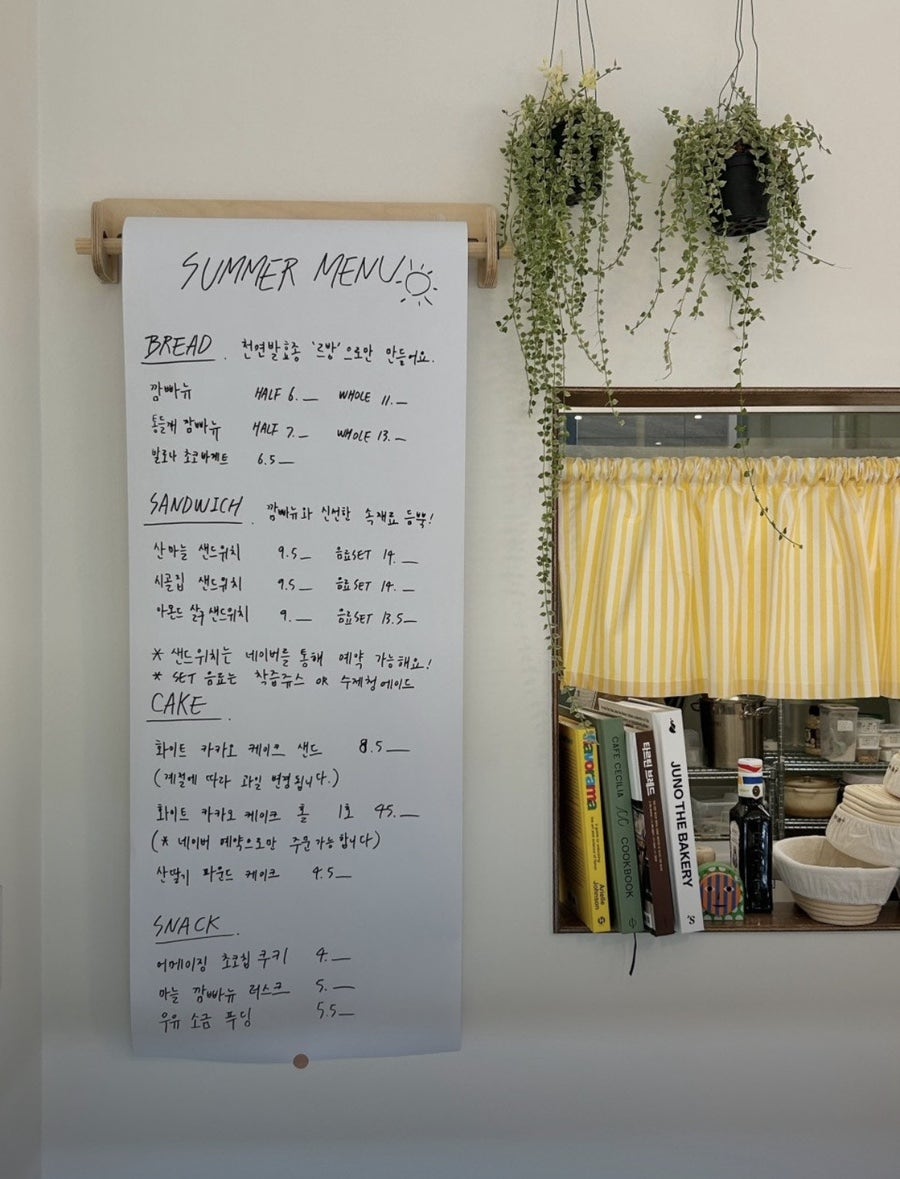 SUMMER MENU
BREAD . 천연발효종 '르방'으로만 만들어요.
깜빠뉴 HALF 6.— WHOLE 11.—
통들깨 깜빠뉴 HALF 7.— WHOLE 13.—
발로나 초코바게트 6.5—
SANDWICH . 깜빠뉴와 신선한 속재료 듬뿍!
산마늘 샌드위치 9.5— 음료SET 14.—
시골집 샌드위치 9.5— 음료SET 14.—
아몬드 살구 샌드위치 9.— 음료SET 13.5—
* 샌드위치는 네이버를 통해 예약 가능해요!
* SET 음료는 착즙쥬스 OR 수제청에이드
CAKE .
화이트 카카오 케이크 샌드 8.5—
(계절에 따라 과일 변경됩니다.)
화이트 카카오 케이크 홀 1호 45.—
(* 네이버 예약으로만 주문가능합니다)
산딸기 파운드 케이크 4.5—
SNACK .
어메이징 초코칩 쿠키 4.—
마늘 깜빠뉴 러스크 5.—
우유 소금 푸딩 5.5—
flavorama
Arielle Johnson
CAFE CECILIA
COOKBOOK
타르틴 브레드
JUNO THE BAKERY